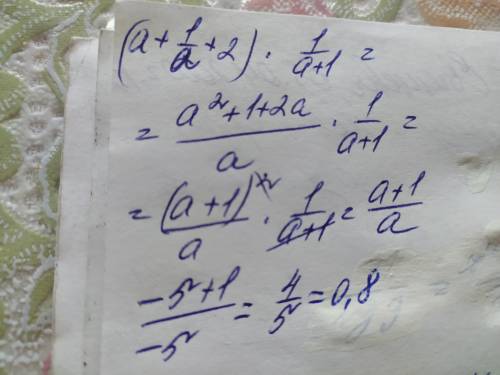 (a + 1/a + 2) · 1/(a+1) =
= (a² + 1 + 2a)/a · 1/(a+1) =
= (a+1)²/a · 1/(a+1) = (a+1)/a
(-5+1)/(-5) = 4/5 = 0,8